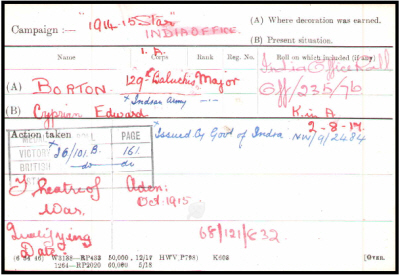 "1914-15 Star"
Campaign :— INDIA OFFICE. (A) Where decoration was earned.
(B) Present situation.
Name Corps Rank Reg. No. Roll on which included (if any)
I. A.
(A) BORTON. 129th Baluchis Major India Office Roll
Off/235/76
(B) Cyprian Edward × Indian Army K. in A.
2-8-17.
Action taken × Issued by Govt of India NW/9/2484
MEDAL PAGE
VICTORY × IB/101.B. 161
BRITISH do do
Theatre of Aden.
War. Oct. 1915
Qualifying 68/121/E32
Date.
(6 34 46) W3188—RP463 50,000 12/17 HWV(P798) K608 [Over.
1964—RP2020 60,000 5/18